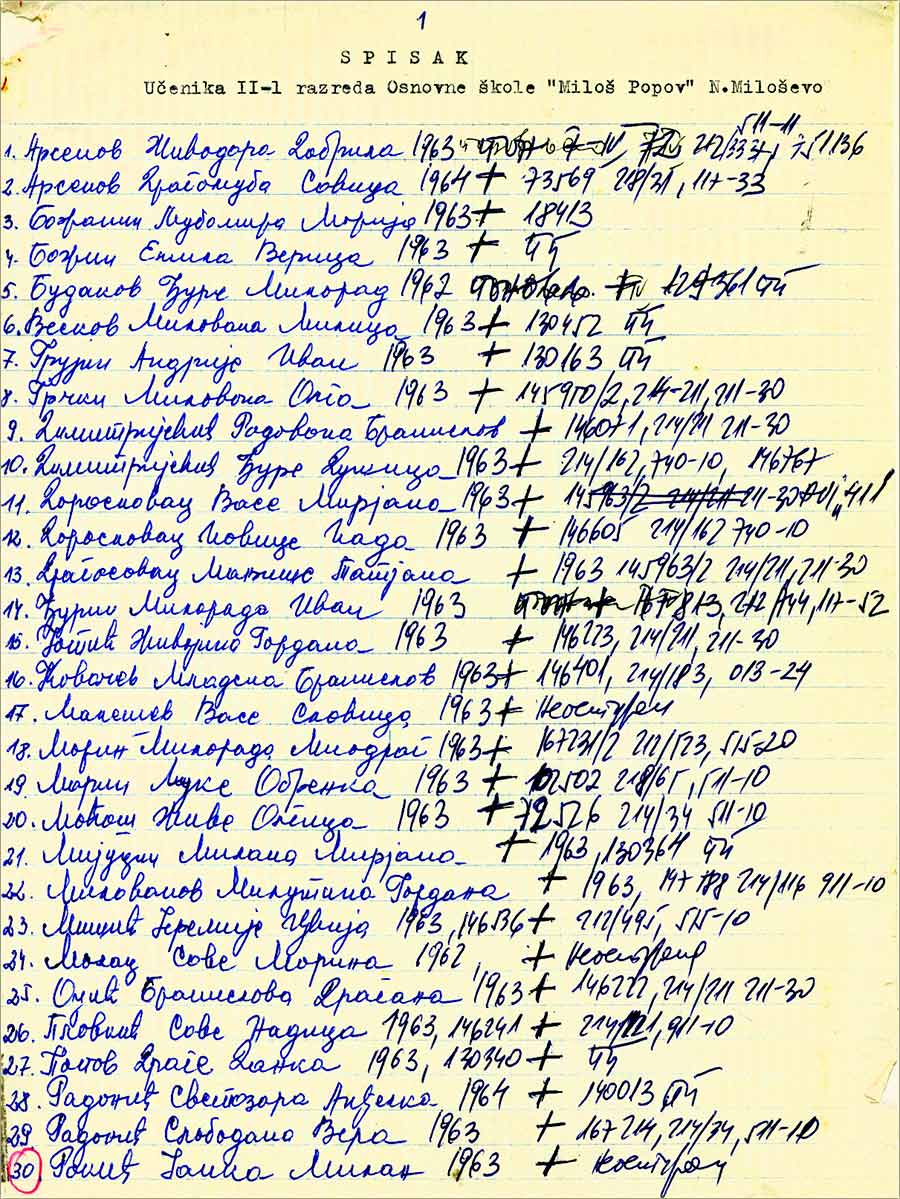 1
SPISAK
Učenika II-1 razreda Osnovne škole "Miloš Popov" N.Miloševo
511-11
1. Арсенов Живодара Добрила 1963 212/333, 751136
2. Арсенов Драгољуба Савица 1964 + 73569 218/31, 117-33
3. Љубомира Марија 1963 + 18413
4. Божин Емила Верица 1963 +
5. Будаков Ђуре Милорад 1962 129361
6. Весков Милована Милица 1963 + 130452
7. Грујин Андрије Иван 1963 + 130163
8. Грчки Милована Олга 1963 + 145950/2, 214-211, 211-30
9. Димитријевић Радована Бранислав + 146071, 214/211 211-30
10. Димитријевић Ђуре Душица 1963 + 214/162, 740-10, 146767
11. Доросковац Васе Мирјана 1963 + 145963/2 214/211 211-30 911
12. Доросковац Јовице Нада 1963 + 146605 214/162 740-10
13. Татјана + 1963 145963/2 214/211, 211-30
14. Ђурин Милорада Иван 1963 212/744, 117-52
15. Јотић Живојина Гордана 1963 + 146223, 214/211, 211-30
16. Ковачев Младена Бранислав 1963 + 146401, 214/183, 013-24
17. Малешев Васе Славица 1963 + Неоситуран
18. Марин Милорада Миодраг 1963 + 167231/2 212/523, 515-20
19. Марин Луке Обренка 1963 + 102502 218/65, 511-10
20. Живе Олгица 1963 + 72526 214/34 511-10
21. Мијуџин Милана Мирјана + 1963, 130364
22. Милованов Милутина Гордана + 1963, 147188 214/116 911-10
23. Мишић Јеремије 1963, 146536 + 212/495, 515-10
24. Молац Саве Марина 1962, +
25. Онић Бранислава Драгана 1963 + 146222, 214/211 211-30
26. Саве Надица 1963, 146241 + 911-10
27. Попов Драге Данка 1963, 130340 +
28. Радонић Светозара Анђелка 1964 + 140013
29 Радонић Слободана Вера 1963 + 167214, 214/34, 511-10
30 Јанка Милан 1963 +